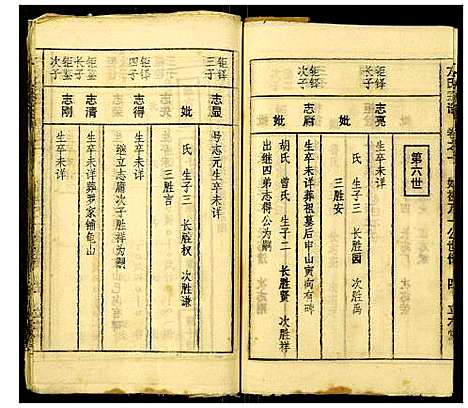 第六世
钜铎长子
志亮
生卒未详
妣
氏 生子三 长胜园 次胜禹
三胜安
钜铎次子
志嵭
生卒未详葬祖墓后申山寅向有碑
妣
胡氏 曾氏 生子二 长胜贤 次胜祥
出继四弟志得公为嗣
钜铎三子
志显
号志元生卒未详
妣
氏 生子三 长胜权 次胜谦
三胜言
钜铎四子
志得
生卒未详
继立志嵭次子胜祥为嗣
钜銮长子
志清
生卒未详葬罗家铺龟山
钜銮次子
志刚
生卒未详